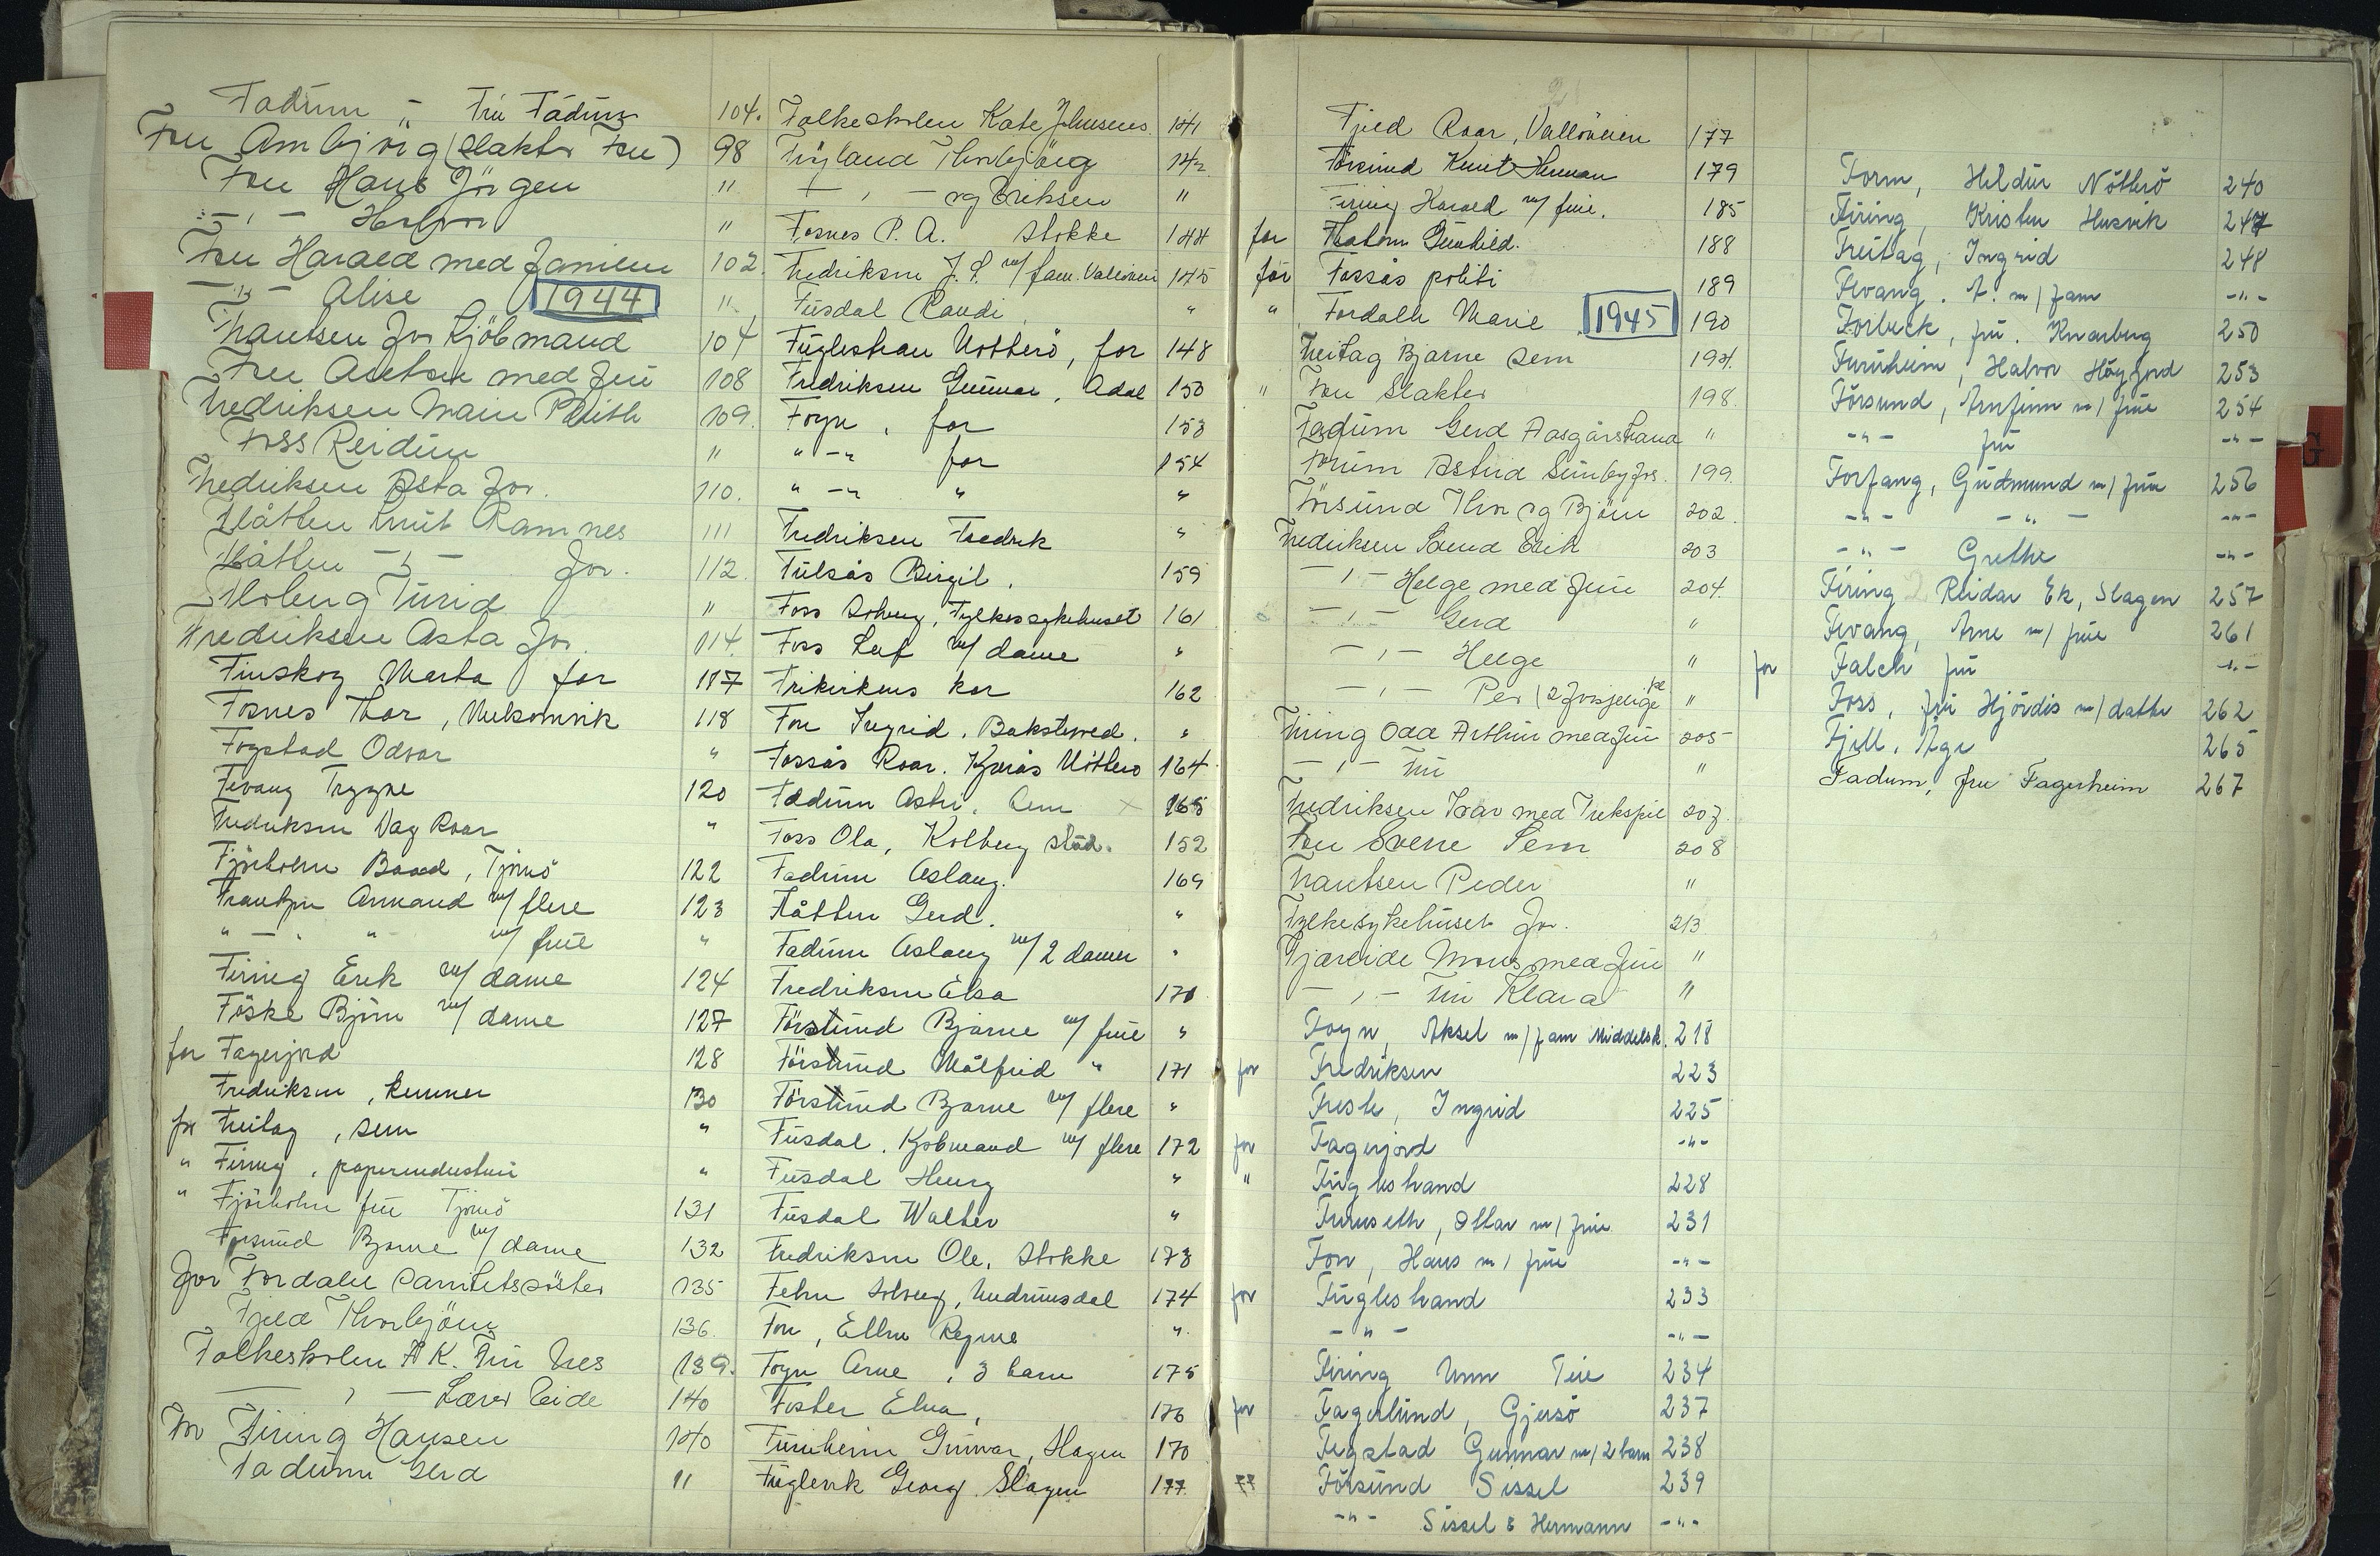 Fadum " Fru Fadum 104.
Fon Ambjørg (slakter Fon) 98
Fon Hans Jörgen "
- " - Halvor "
Fon Harald med familien 102.
- " - Alise 1944 "
Frantsen for Kjöbmand 104
Fon Anton med frue 108
Fredriksen 109.
Foss Reidun "
Fredriksen Asta for. 110.
Flåtten Knut Ramnes 111
Flåtten - " - for. 112.
Floberg Turid "
Fredriksen Asta for. 114.
Finskog Marta for 117
Fosnes Thor, 118
Fogstad Odvar "
Fevang Trygve 120
Fredriksen Dag Roar "
Fjärholm Baard, Tjømö 122
Armand m/ flere 123
" - " - " m/ frue "
Firing Erik m/ dame 124
Föske Björn m/ dame 127
for Fagerjord 128
Fredriksen, kemner 130
for Freitag, Sem "
" Firing, papirindustrien "
" Fjärholm frue Tjømö 131
Forsund Bjarne m/ dame 132
for Fordalen sanitetssöster 135
Fjeld Thorbjörn 136.
Folkeskolen A K. Fru Nes 139.
- " - Lærer Eide 140
for Firing Hansen 140
Fadum Gerd "
Folkeskolen Kate Johnsens 141
Frøyland Thorbjörg 142
- " - og Eriksen "
Fosnes P. A. Stokke 144
Fredriksen J. S. m/ fam. Vallöveien 145
Fusdal Randi "
Fuglestran Nötterö, for 148
Fredriksen Gunnar, Adal 150
Foyn, for 153
" - " for 154
" - " " "
Fredriksen Fredrik "
Fulsås Birgit. 159
Foss Solveig, Fylkessykehuset 161
Foss Leif m/ dame "
Frikirkens kor 162
Fon Ingrid, Baksteved. "
Fossås Roar. Kjærås Nötterö 164
Fadum Astri, Sem × 165
Foss Ola, Kolberg stad. 152
Fadum Aslaug. 169
Flåtten Gerd. "
Fadum Aslaug m/ 2 damer "
Fredriksen Elsa 170
Försund Bjarne m/ frue "
Försund Målfrid " 171
Försund Bjarne m/ flere "
Fusdal, Kjöbmand m/ flere 172
Fusdal Henry "
Fusdal Walter "
Fredriksen Ole, Stokke 173
Fehn Solveig, Undrumsdal 174
Fon, Ellen Regine "
Foyn Arne, 3 barn 175
Foster Elna, 176
Furuheim Gunnar, Slagen 170
Fuglevik Georg Slagen 177
Fjeld Roar, Vallöveien 177
Försund Knut Herman 179
Firing Harald m/ frue. 185
for Flatem Gunhild. 188
for Fossås politi 189
" Fordalen Marie 1945 190
Freitag Bjarne Sem 194.
" Fon Slakter 198.
Fadum Gerd Aasgårstrand "
Forum Astrid Sunbyfos. 199.
Försund Thor og Björn 202.
Fredriksen Svend Erik 203
- " - Helge med frue 204.
- " - Gerd "
- " - Helge "
- " - Per (2 forskjelige pl "
Firing Odd Arthur med frue 205
- " - fru "
Fredriksen Ivar med Trekspil 207.
Fon Sverre Sem 208
Frantsen Peder "
Fylkesykehuset for. 213
Fjæreide Mons med frue "
- " - fru Klara "
Foyn, Aksel m/ fam Middelsk. 218
for Fredriksen 223
Fresti, Ingrid 225
for Fagerjord - " -
" Fuglestrand 228
Furuseth, Ottar m/ frue 231
Fon, Hans m/ frue - " -
for Fuglestrand 233
- " - - " -
Firing Unn Teie 234
for Fagerlund, Gjersö 237
Fegstad Gunnar m/ 2 barn 238
Försund Sissel 239
- " - Sissel & Hermann - " -
Form, Heldur Nötterö 240
Firing, Kristen Husvik 247
Freitag, Ingrid 248
Fevang, A. m/ fam - " -
Forbeck, fru. Knarberg 250
Furuheim, Halvor Höyjord 253
Försund, Arnfinn m/ frue 254
- " - fru - " -
Forfang, Gudmund m/ frue 256
- " - - " - - " -
- " - Grethe - " -
Firing Reidar Ek, Slagen 257
Fevang, Arne m/ frue 261
for Falch fru - " -
Foss, fru Hjördis m/ datter 262
Fjell, Åge 265
Fadum, fru Fagerheim 267
G